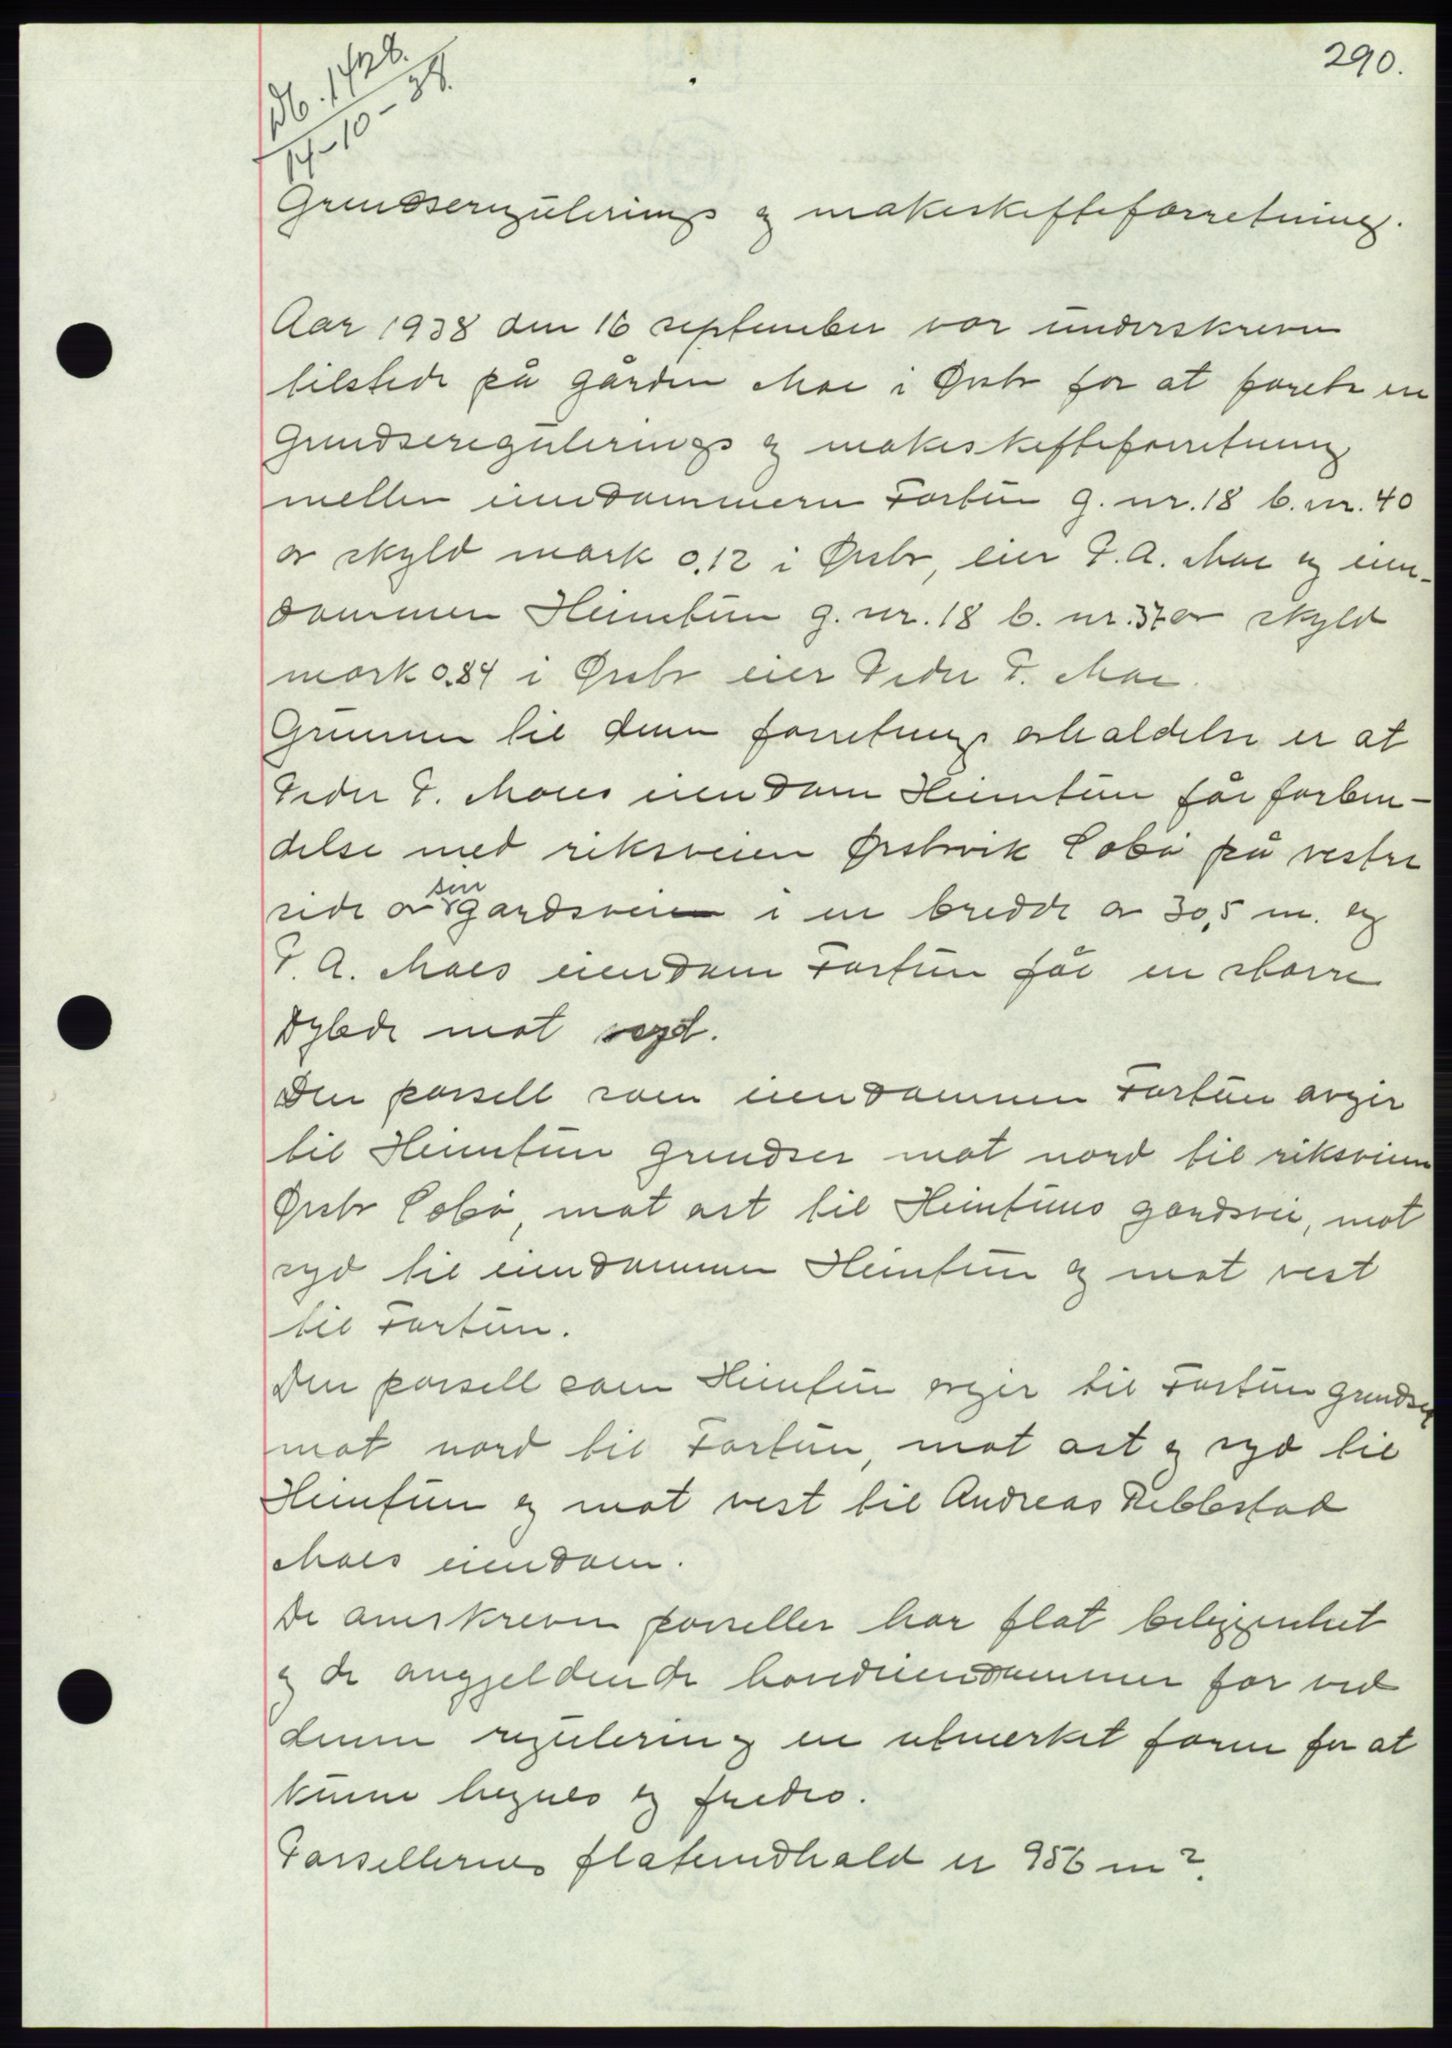 290.
Db. 1428.
14-10-38.
Grendseregulerings og makeskifteforretning.
Aar 1938 den 16 september var underskreven
tilstede på gården Moe i Ørsta for at foreta en
Grendseregulerings og makeskifteforretning
mellem eiendommern Fortun g. nr. 18 b. nr. 40
av skyld mark 0,12 i Ørsta, eier P. A. Moe og eien-
dommen Heimtun g. nr. 18 b. nr. 37 av skyld
mark 0.84 i Ørsta eier Peder P. Moe.
Grunnen til denne forretnings avholdelse er at
Peder P. Moes eiendom Heimtun får forbin-
delse med riksveien Ørstavik Follestaddal på vestre
side av sin gardsvei i en bredde av 30,5 m. og
P. A. Moes eiendom Fortun får en større
dybde mot syd.
Den parsell som eiendommen Fortun avgir
til Heimtun grendser mot nord til riksveien
Ørsta, mot øst til Heimtuns gardsvei, mot
syd til eiendommen Heimtun og mot vest
til Fortun.
Den parsell som Heimtun avgir til Fortun grendser
mot nord til Fortun, mot øst og syd til
Heimtun og mot vest til Andreas Ribbestad
Moes eiendom.
De omskrevne parseller har flat beliggenhet
og de angjeldende hovedeiendommer får ved
denne regulering en utmerket form for at
kunne hegnes og fredes.
Parsellernes flateindhold er 956 m².